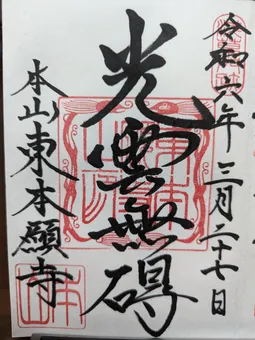 令和六年三月二十七日
光雲無碍
本山東本願寺